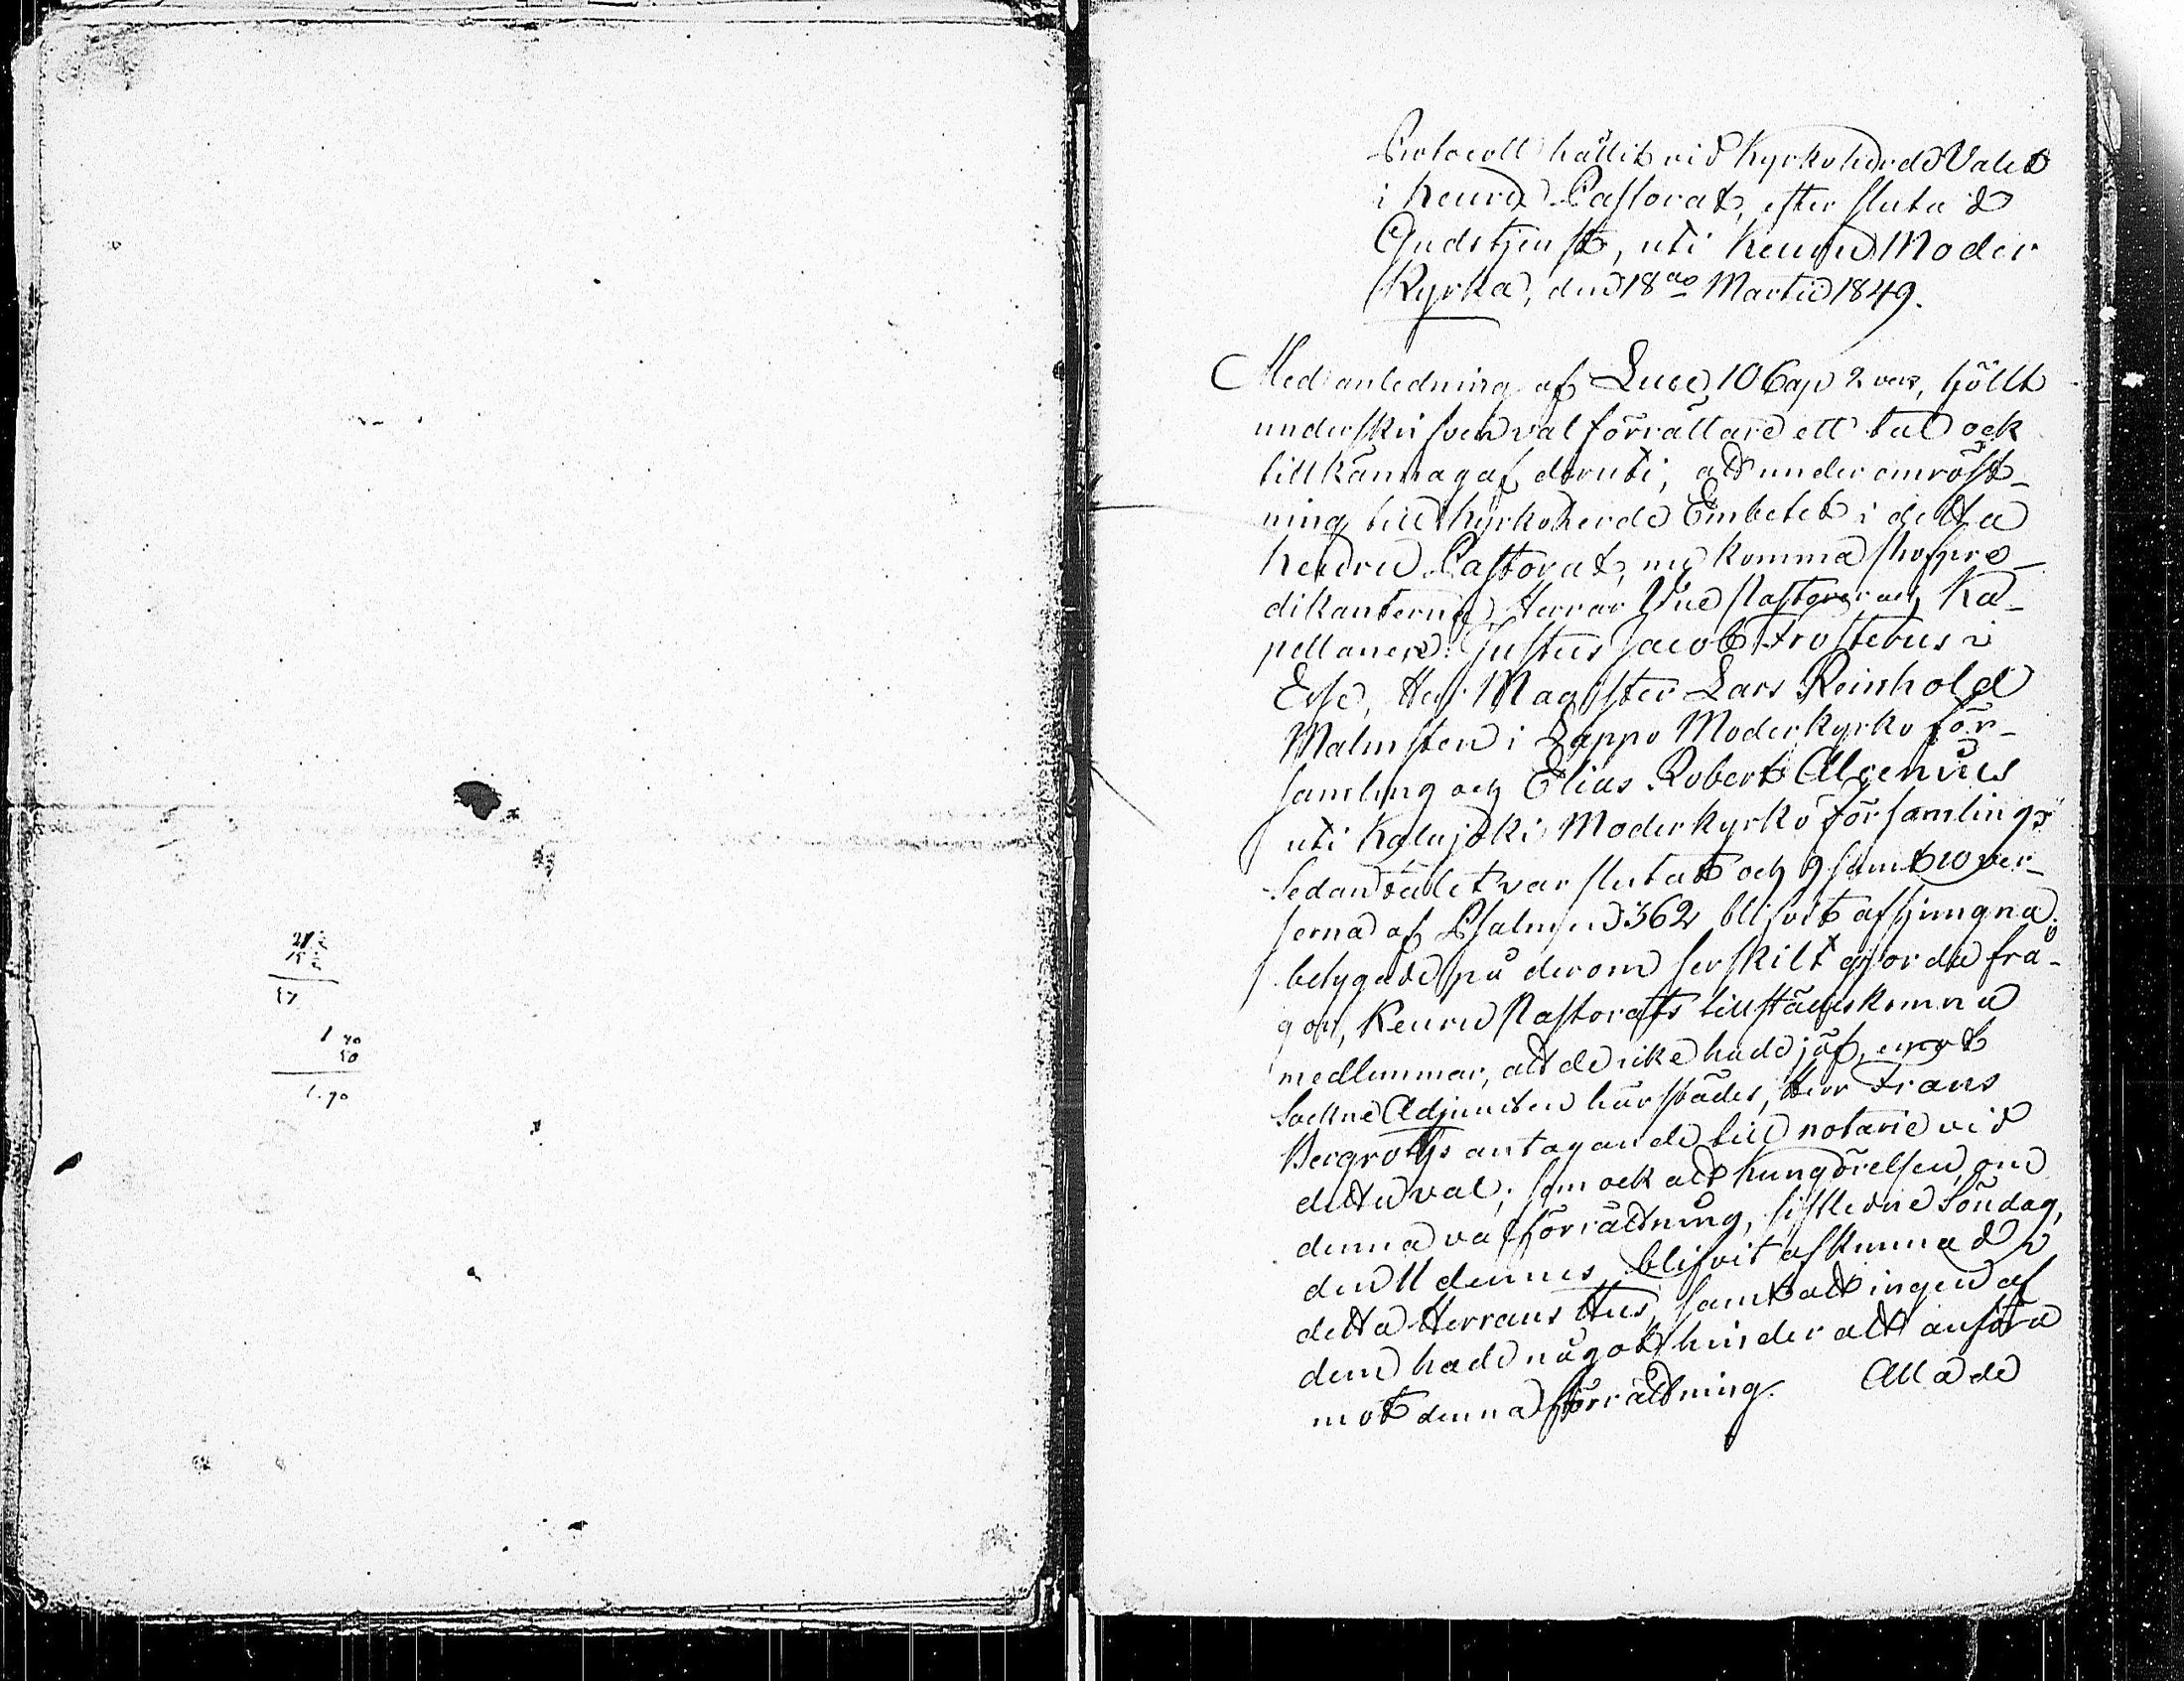 21 1/2
15 1/2
57
1 40
50
1.90
Protocoll hållit vid Kyrkoherde Valet
i Keuru Pastorat, efter slutad
Gudstjenst, uti Keuru Moder
Kyrka, den 18de Martii 1849.
Med anledning af Luce 10 Cap 2 vers, höllt
underskrifven valförrättare ett tal ock
tillkännagaf deruti, att under omröst-
ning till Kyrkoherde Embetet i detta
Keuru Pastorat, nu komma profpre-
dikanterne, Herrar Vice Pastorer och Ka-
pellaner: Justus Jacob Frosterus i
Esse, Herr Magister Lars Reinhold
Malmsten i Lappo Moderkyrko för-
samling och Elias Robert Alcenius
uti Kalajoki Moderkyrko församling
Sedan talet var slutat och 9 samt 10 ver-
serna af Psalmen 362 blifvit afsjungna,
betygade på derom serskilt gjorda frå-
gor, Keuru Pastorats tillstädeskomna
medlemmar, att de icke hade jäf emot
Sockne Adjuncten härstädes, Herr Frans
Bergroths antagande till notarie vid
detta val; som ock att kungörelsen om
denna valförrättning, sistledne Söndag,
den 11 dennes, blifvit afkunnad i
detta Herrans Hus, samt att ingen af
dem hade något hinder att anföra
mot denna förrättning. Alla de